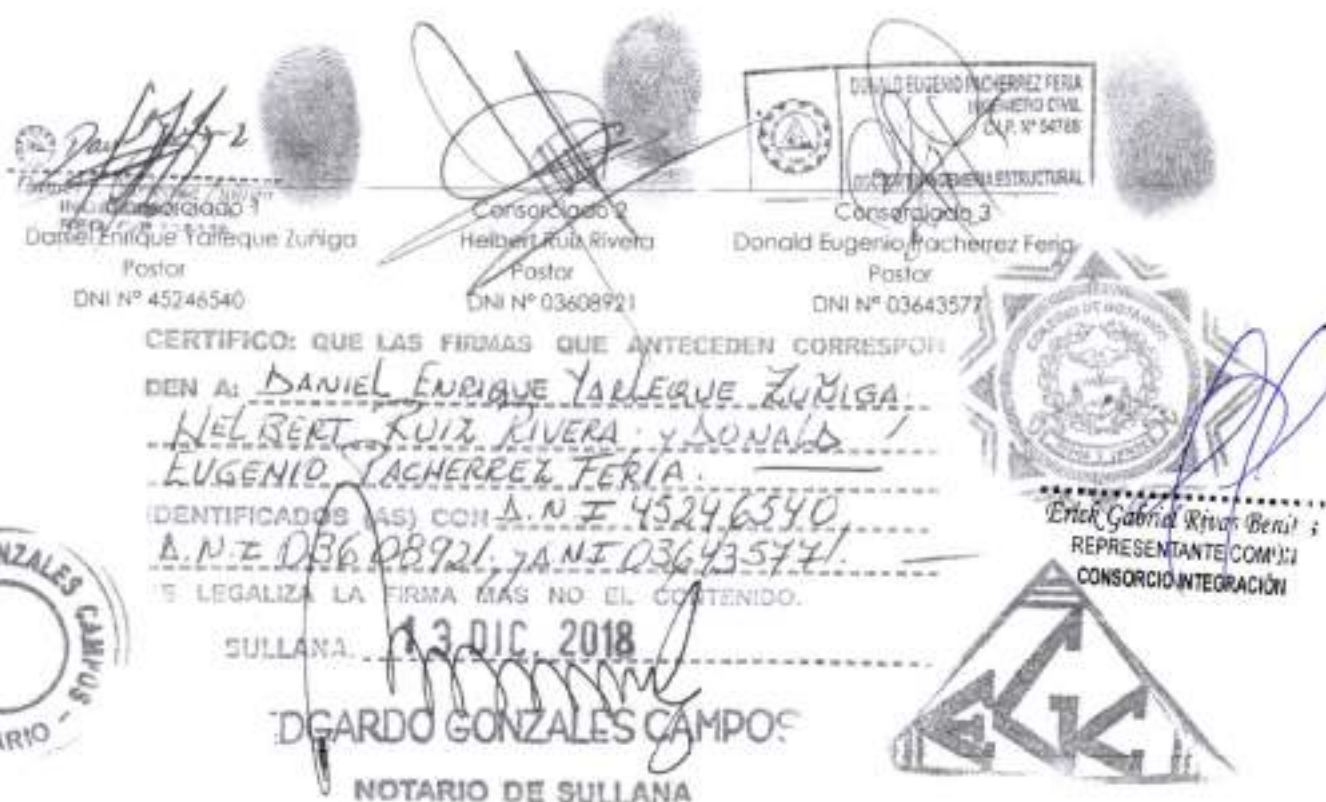 DONALD EUGENIO PACHERREZ FERIA
INGENIERO CIVIL
C.I.P. Nº 54788
DOCTOR INGENIERIA ESTRUCTURAL
Consorciado 1
Daniel Enrique Yarleque Zuñiga
Postor
DNI Nº 45246540
Consorciado 2
Helbert Ruiz Rivera
Postor
DNI Nº 03608921
Consorciado 3
Donald Eugenio Pacherrez Feria
Postor
DNI Nº 03643577
CERTIFICO: QUE LAS FIRMAS QUE ANTECEDEN CORRESPON
DEN A: DANIEL ENRIQUE YARLEQUE ZUÑIGA.
HELBERT RUIZ RIVERA y DONALD
EUGENIO PACHERREZ FERIA.
IDENTIFICADOS (AS) CON D.N.I 45246540,
D.N.I 03608921, y DNI 03643577.
SE LEGALIZA LA FIRMA MAS NO EL CONTENIDO.
SULLANA. 13 DIC. 2018
EDGARDO GONZALES CAMPOS
NOTARIO DE SULLANA
NZALES CAMPOS -
ARIO
COLEGIO DE NOTARIOS
PIURA Y TUMBES
Erick Gabriel Rivas Benit s
REPRESENTANTE COMUN
CONSORCIO INTEGRACIÓN